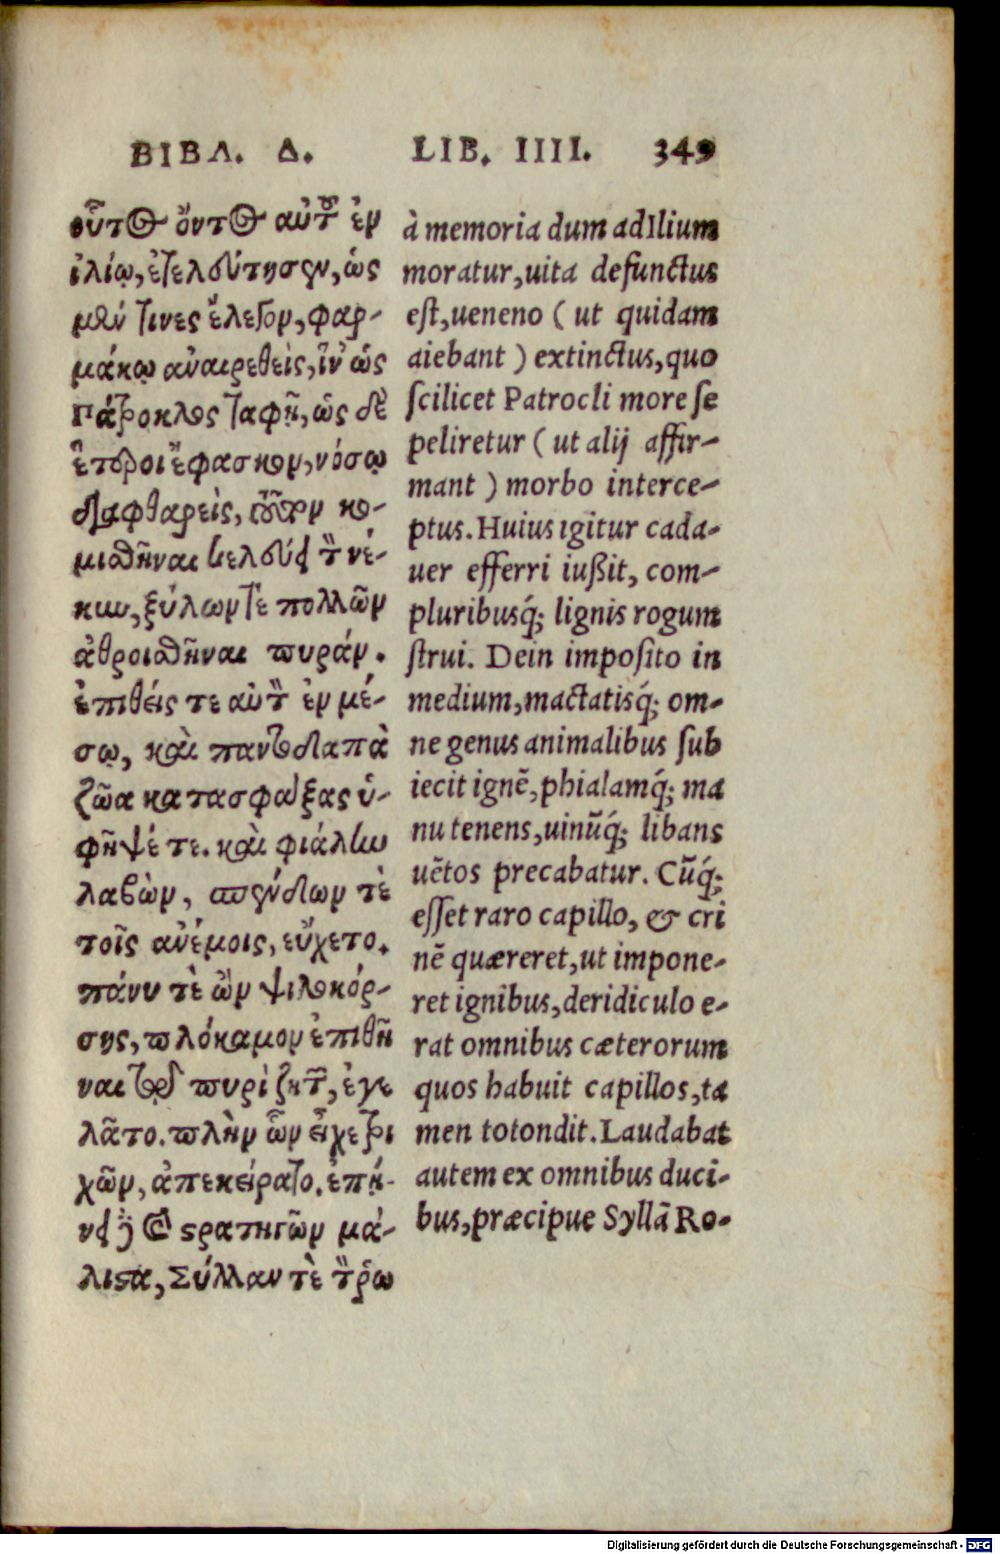 ΒΙΒΛ. Δ. LIB. IIII. 349
οὗτος ὄντος αὐτοῦ ἐν
ἰλίῳ, ἐτελεύτησεν, ὡς
μὲν τινες ἔλεγον, φαρ-
μάκῳ ἀναιρεθεὶς, ἵν' ὡς
Πάτροκλος ταφῇ, ὡς δὲ
ἕτεροι ἔφασκον, νόσῳ
διαφθαρείς, κο-
μισθῆναι κελεύει τὸν νέ-
κυν, ξύλων τε πολλῶν
ἀθροισθῆναι πυράν.
ἐπιθείς τε αὐτὸν ἐν μέ-
σῳ, καὶ παντοδαπὰ
ζῶα κατασφάξας ὑ-
φῆψέ τε. καὶ φιάλην
λαβὼν, σπένδων τὲ
τοῖς ἀνέμοις, εὔχετο.
πάνυ τὲ ὢν ψιλοκόρ-
σης, πλόκαμον ἐπιθῆ
ναι τῷ πυρὶ ζητῶν, ἐγε
λᾶτο. πλὴν ὧν εἶχε τρι
χῶν, ἀπεκείρατο. ἐπῄ-
νει δὲ καὶ στρατηγῶν μά-
λιστα, Σύλλαν τὲ τὸν ῥω
à memoria dum ad Ilium
moratur, uita defunctus
est, ueneno ( ut quidam
aiebant ) extinctus, quo
scilicet Patrocli more se
peliretur ( ut alij affir-
mant ) morbo interce-
ptus. Huius igitur cada-
uer efferri iußit, com-
pluribusq́; lignis rogum
strui. Dein imposito in
medium, mactatisq́; om-
ne genus animalibus sub
iecit ignẽ, phialamq́; ma
nu tenens, uinũq́; libans
uẽtos precabatur. Cũq́;
esset raro capillo, & cri
nẽ quæreret, ut impone-
ret ignibus, deridiculo e-
rat omnibus cæterorum
quos habuit capillos, ta
men totondit. Laudabat
autem ex omnibus duci-
bus, præcipue Syllã Ro-
Digitalisierung gefördert durch die Deutsche Forschungsgemeinschaft - DFG